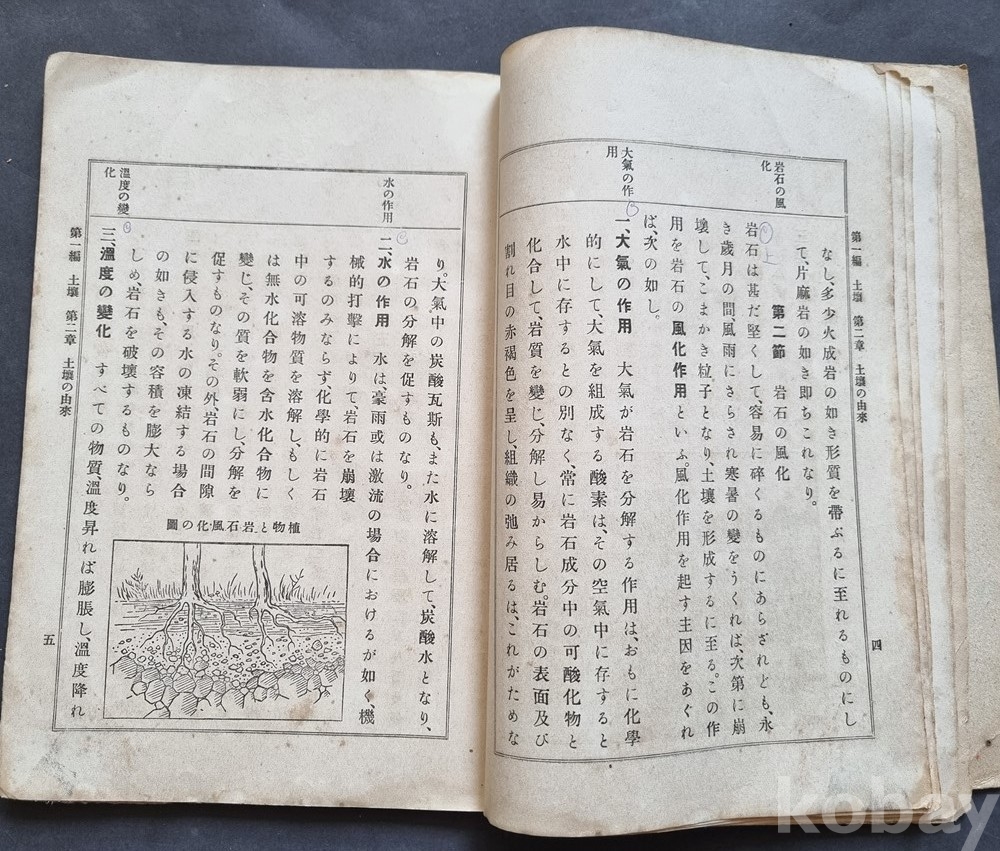 第一編　土壤　第二章　土壤の由來
四
岩石の風化
大氣の作用
なし、多少火成岩の如き形質を帶ぶるに至れるものにし
て、片麻岩の如き卽ちこれなり。
第二節　岩石の風化
岩石は甚だ堅くして、容易に碎くるものにあらざれども、永
き歲月の間、風雨にさらされ寒暑の變をうくれば、次第に崩
壞して、こまかき粒子となり、土壤を形成するに至る。この作
用を岩石の風化作用といふ。風化作用を起す主因をあぐれ
ば、次の如し。
一、大氣の作用　大氣が岩石を分解する作用は、おもに化學
的にして、大氣を組成する酸素は、その空氣中に存すると
水中に存するとの別なく、常に岩石成分中の可酸化物と
化合して、岩質を變じ、分解し易からしむ。岩石の表面及び
割れ目の赤褐色を呈し、組織の弛み居るは、これがためな
水の作用
溫度の變化
り。大氣中の炭酸瓦斯も、また水に溶解して、炭酸水となり、
岩石の分解を促すものなり。
二、水の作用　水は、豪雨或は激流の場合におけるが如く、機
械的打擊によりて、岩石を崩壞
するのみならず、化學的に岩石
中の可溶物質を溶解し、もしく
は無水化合物を含水化合物に
變じ、その質を軟弱にし、分解を
促すものなり。その外、岩石の間隙
に侵入する水の凍結する場合
の如きも、その容積を膨大なら
しめ、岩石を破壞するものなり。
植物と岩石風化の圖
三、溫度の變化　すべての物質、溫度昇れば膨脹し、溫度降れ
第一編　土壤　第二章　土壤の由來
五
上
kobay